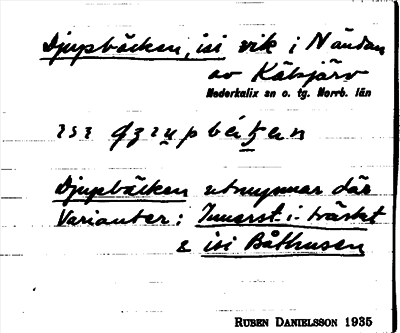 Djupbäcken, isi vik i N ändan
av Kälsjärv
Nederkalix sn o. tg. Norrb. län
Djupbäcken utmynnar där
Varianter: Innerst i träsket
& isi Båthusen
RUBEN DANIELSSON 1935